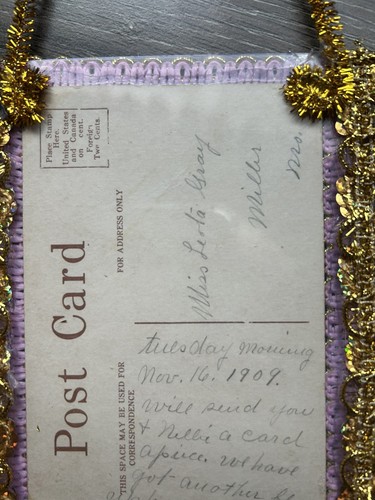 Place Stamp
Here.
United States
and Canada
on cent.
Foreign
Two Cents.
Post Card
FOR ADDRESS ONLY
THIS SPACE MAY BE USED FOR
CORRESPONDENCE
Miss Leota Gray
Miller
Mrs.
Tuesday Morning
Nov. 16. 1909.
will send you
& Nellie a card
apiece. we have
got another